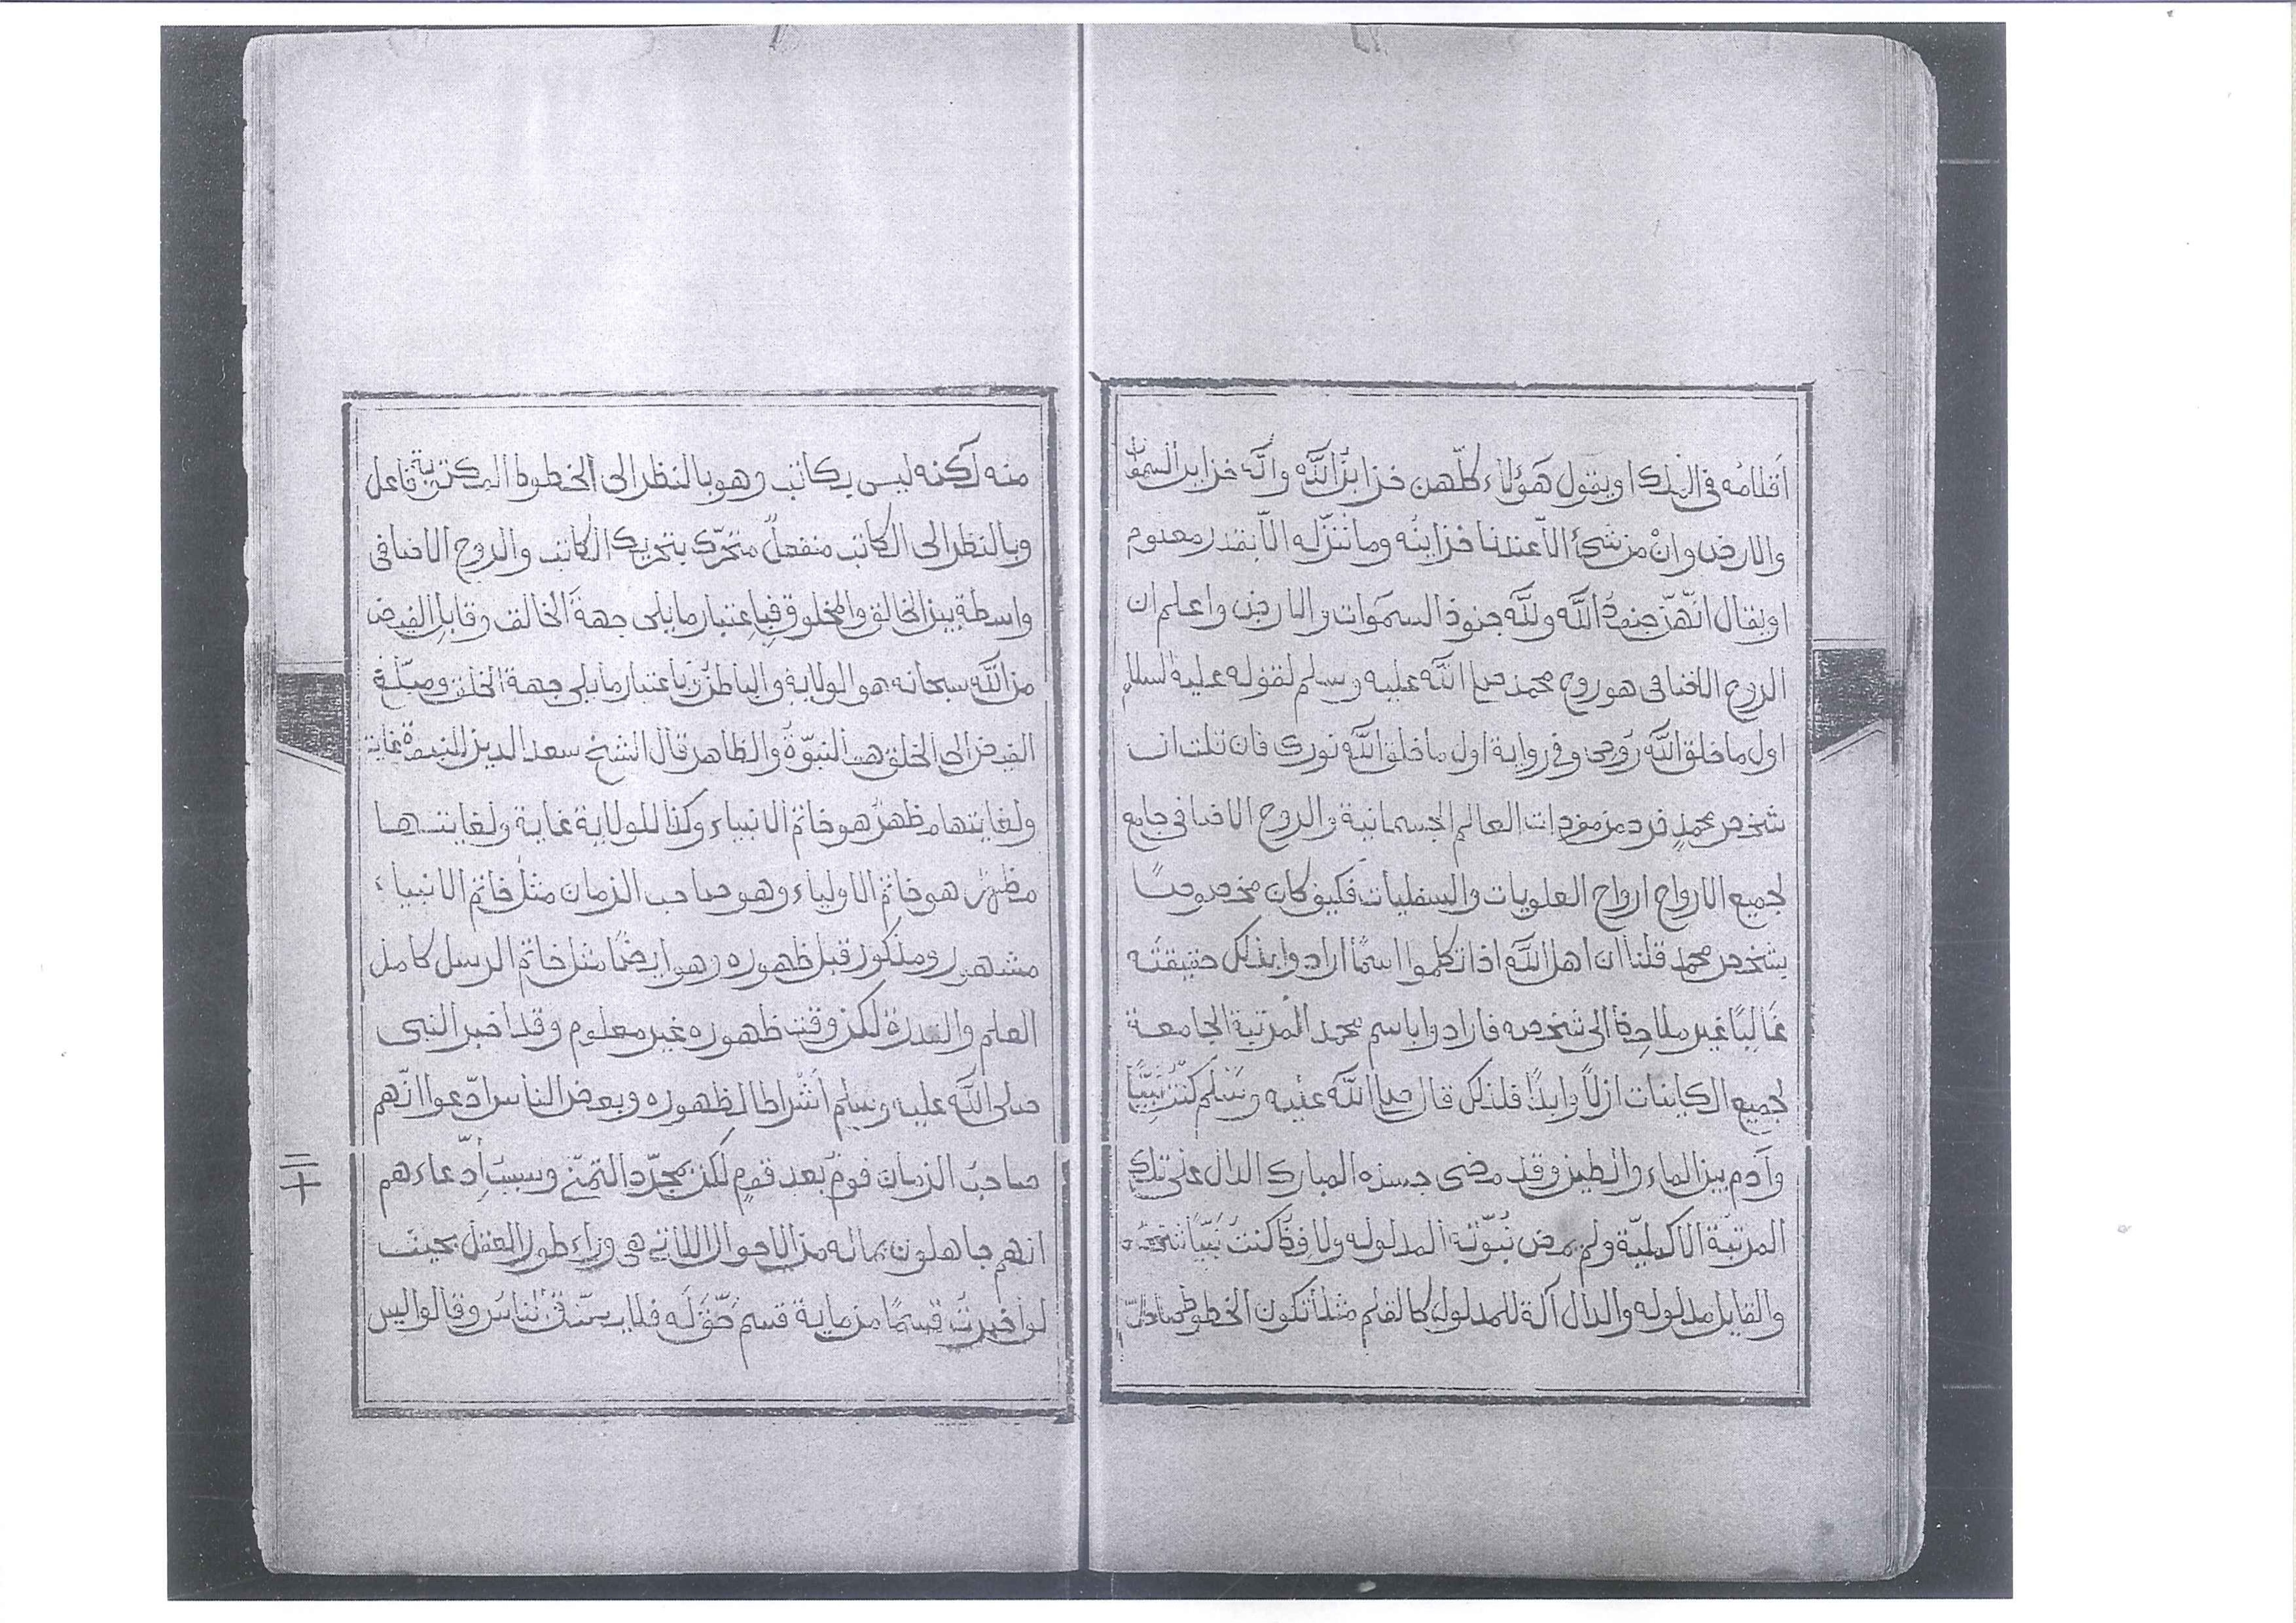 اقلامه في الفلك او يقول هؤلاء كلّهن خزاين الله وانّه خزاين السموات
والارض وانْ من شئ الّا عندنا خزاينه وما ننزّله الّا بقدر معلوم
او يقال انّهنّ جنود الله ولله جنود السموات والارض واعلم ان
الروح الاضافي هو روح محمد صلى الله عليه وسلم لقوله عليه السلام
اول ما خلق الله روحي وفي رواية اول ما خلق الله نوري فان قلت ان
شخص محمدٍ فرد من مفردات العالم الجسمانية والروح الاضافي جامع
لجميع الارواح ارواح العلويات والسفليات فكيف كان مخصوصًا
بشخص محمد قلنا ان اهل الله اذا تكلموا اسمًا ارادوا بذلك حقيقته
غالبًا غير ملاحظ الى شخصه فارادوا باسم محمد المرتبة الجامعة
لجميع الكاينات ازلًا وابدًا فلذلك قال صلى الله عليه وسلم كنت نبيًّا
وآدم بين الماء والطين وقد مضى جسده المبارك الدال على تلك
المرتبة الاكملية ولم يمض نبوّته المدلوله ولا فظ كنتُ نبيًّا شخصه
والقايل مدلوله والدال آلة للمدلول كالقلم مثلًا تكون الخطوط صادرة
منه لكنه ليس بكاتب وهو بالنظر الى الخطوط المكتوبة فاعل
وبالنظر الى الكاتب منفعلٌ متحرّك بتحريك الكاتب والروح الاضافي
واسطة بين الخالق والمخلوق فباعتبار ما يلي جهة الخالق وقابل الفيض
من الله سبحانه هو الولاية والباطن وباعتبار ما يلي جهة الخلق ومبلّغ
الفيض الى الخلق هو النبوّة والظاهر قال الشيخ سعد الدين للنبوة غاية
ولغايتها مظهرٌ هو خاتم الانبياء وكذا للولاية غاية ولغايتها
مظهرٌ هو خاتم الاولياء وهو صاحب الزمان مثل خاتم الانبياء
مشهور ومذكور قبل ظهوره وهو ايضًا مثل خاتم الرسل كامل
العلم والقدرة لكن وقت ظهوره غير معلوم وقد اخبر النبي
صلى الله عليه وسلم اشْراطا لظهوره وبعض الناس ادّعوا انّهم
صاحب الزمان قومٌ بعد قومٍ لكن بمجرّد التمنّي وسبب ادّعاءهم
انهم جاهلون بماله من الاحوال اللاتي هي وراء طور العقل بحيث
لو اخبرتَ قسمًا من ماية قسم حقّ له فلا يصدّق الناس وقالوا ليس